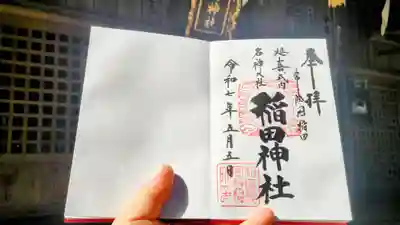 奉拝
常陸国稲田
稲田神社
延喜式内
名神大社
令和七年五月五日